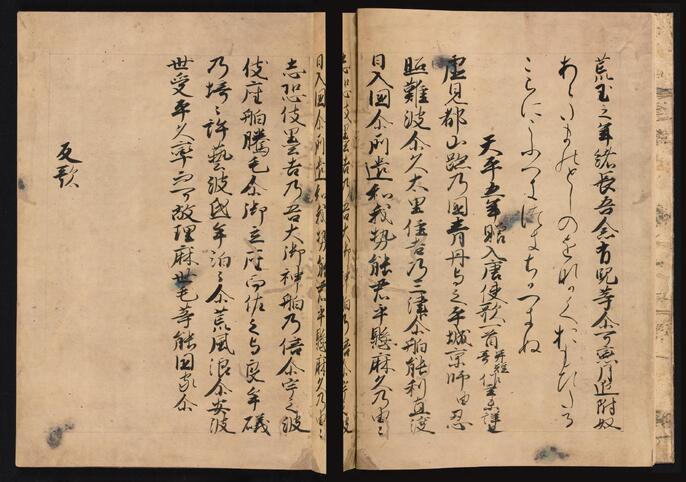 荒玉之年緒長吾念有兒等尓可戀月近附奴
あらたまのとしのをなかくおもひたる
こらにこふへきつきちかつきぬ
天平五年贈入唐使歌一首并短歌作主未詳
虚見都山跡乃國青丹与之平城京師由忍
照難波尓久太里住吉乃三津尓舶能利直渡
日入國尓所遣和我勢能君乎懸麻久乃由〻
日入國尓所遣和我勢能君乎懸麻久乃由〻
志恐伎墨吉乃吾大御神舶乃倍尓宇之波
伎座舶騰毛尓御立座而佐之与良牟礒
乃埼〻許藝波底牟泊〻尓荒風浪尓安波
世受平久率而可敝理麻世毛等能國家尓
反歌